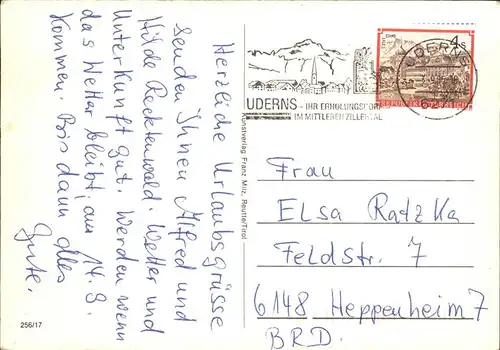 Herzliche Urlaubsgrüsse
senden Ihnen Alfred und
Hilde Recktenwald. Wetter und
Unterkunft gut. Werden wenn
das Wetter bleibt, am 14.9.
kommen. Bis dann alles
Gute.
256/17
Kunstverlag Franz Milz, Reutte/Tirol
UDERNS - IHR ERHOLUNGSORT
IM MITTLEREN ZILLERTAL
4 S
REPUBLIK ÖSTERREICH
UDERNS
Frau
Elsa Ratzka
Feldstr. 7
6148 Heppenheim 7
BRD.